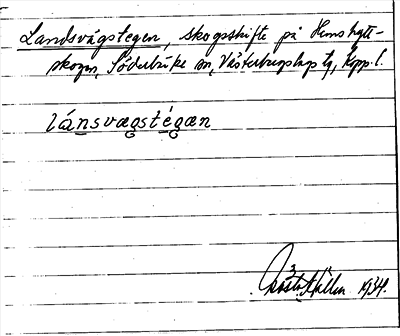 Landsvägstegen, skogsskifte på Hemshytt-
skogen, Söderbärke sn, Västerbergslags tg, Kopp. l.
lánsvægstégæn
Gösta Sællen 1934.